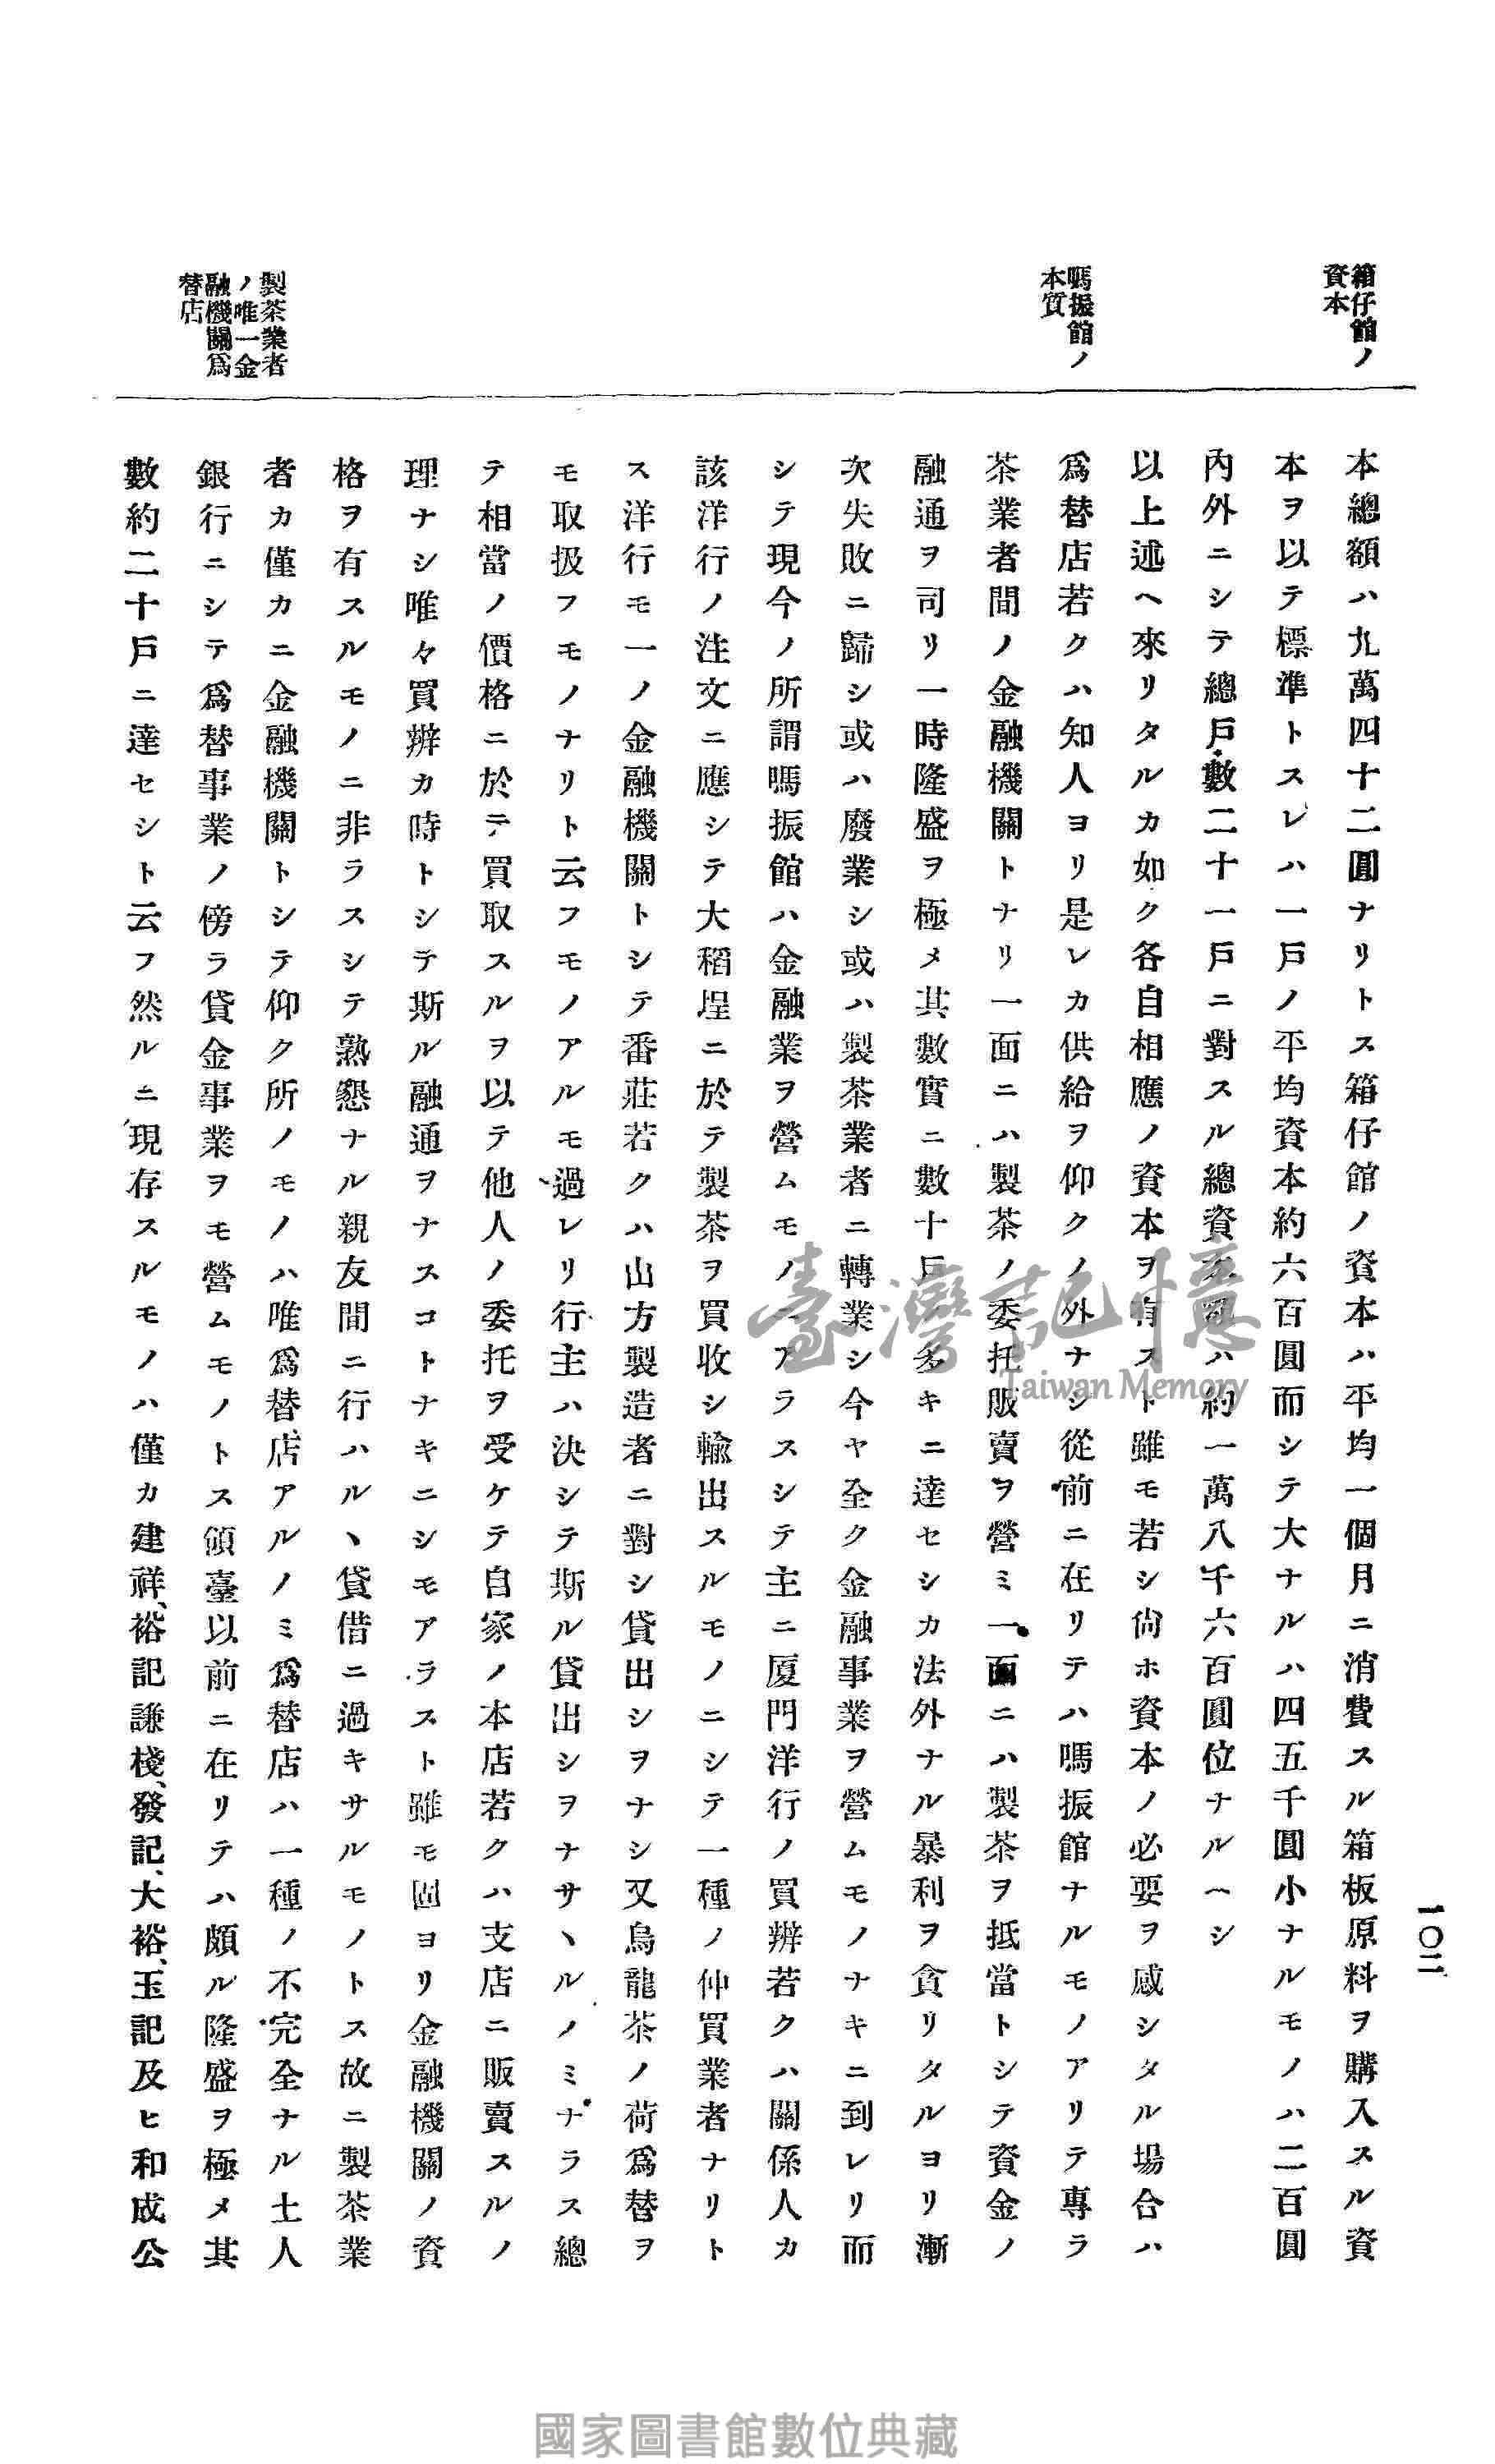 一〇二
箱仔館ノ
資本
嗎振館ノ
本質
製茶業者
ノ唯一金
融機關爲
替店
本總額ハ九萬四十二圓ナリトス箱仔館ノ資本ハ平均一個月ニ消費スル箱板原料ヲ購入スル資
本ヲ以テ標準トスレハ一戶ノ平均資本約六百圓而シテ大ナルハ四五千圓小ナルモノハ二百圓
內外ニシテ總戶數二十一戶ニ對スル總資本額ハ約一萬八千六百圓位ナルヘシ
以上述ヘ來リタルカ如ク各自相應ノ資本ヲ有スト雖モ若シ尙ホ資本ノ必要ヲ感シタル場合ハ
爲替店若クハ知人ヨリ是レカ供給ヲ仰クノ外ナシ從前ニ在リテハ嗎振館ナルモノアリテ專ラ
茶業者間ノ金融機關トナリ一面ニハ製茶ノ委托販賣ヲ營ミ一面ニハ製茶ヲ抵當トシテ資金ノ
融通ヲ司リ一時隆盛ヲ極メ其數實ニ數十戶ノ多キニ達セシカ法外ナル暴利ヲ貪リタルヨリ漸
次失敗ニ歸シ或ハ廢業シ或ハ製茶業者ニ轉業シ今ヤ全ク金融事業ヲ營ムモノナキニ到レリ而
シテ現今ノ所謂嗎振館ハ金融業ヲ營ムモノニアラスシテ主ニ厦門洋行ノ買辨若クハ關係人カ
該洋行ノ注文ニ應シテ大稻埕ニ於テ製茶ヲ買收シ輸出スルモノニシテ一種ノ仲買業者ナリト
ス洋行モ一ノ金融機關トシテ番莊若クハ山方製造者ニ對シ貸出シヲナシ又烏龍茶ノ荷爲替ヲ
モ取扱フモノナリト云フモノアルモ過レリ行主ハ決シテ斯ル貸出シヲナサヽルノミナラス總
テ相當ノ價格ニ於テ買取スルヲ以テ他人ノ委托ヲ受ケテ自家ノ本店若クハ支店ニ販賣スルノ
理ナシ唯々買辨カ時トシテ斯ル融通ヲナスコトナキニシモアラスト雖モ固ヨリ金融機關ノ資
格ヲ有スルモノニ非ラスシテ熟懇ナル親友間ニ行ハルヽ貸借ニ過キサルモノトス故ニ製茶業
者カ僅カニ金融機關トシテ仰ク所ノモノハ唯爲替店アルノミ爲替店ハ一種ノ不完全ナル土人
銀行ニシテ爲替事業ノ傍ラ貸金事業ヲモ營ムモノトス領臺以前ニ在リテハ頗ル隆盛ヲ極メ其
數約二十戶ニ達セシト云フ然ルニ現存スルモノハ僅カ建祥、裕記謙棧、發記、大裕、玉記及ヒ和成公
臺灣記憶
Taiwan Memory
國家圖書館數位典藏